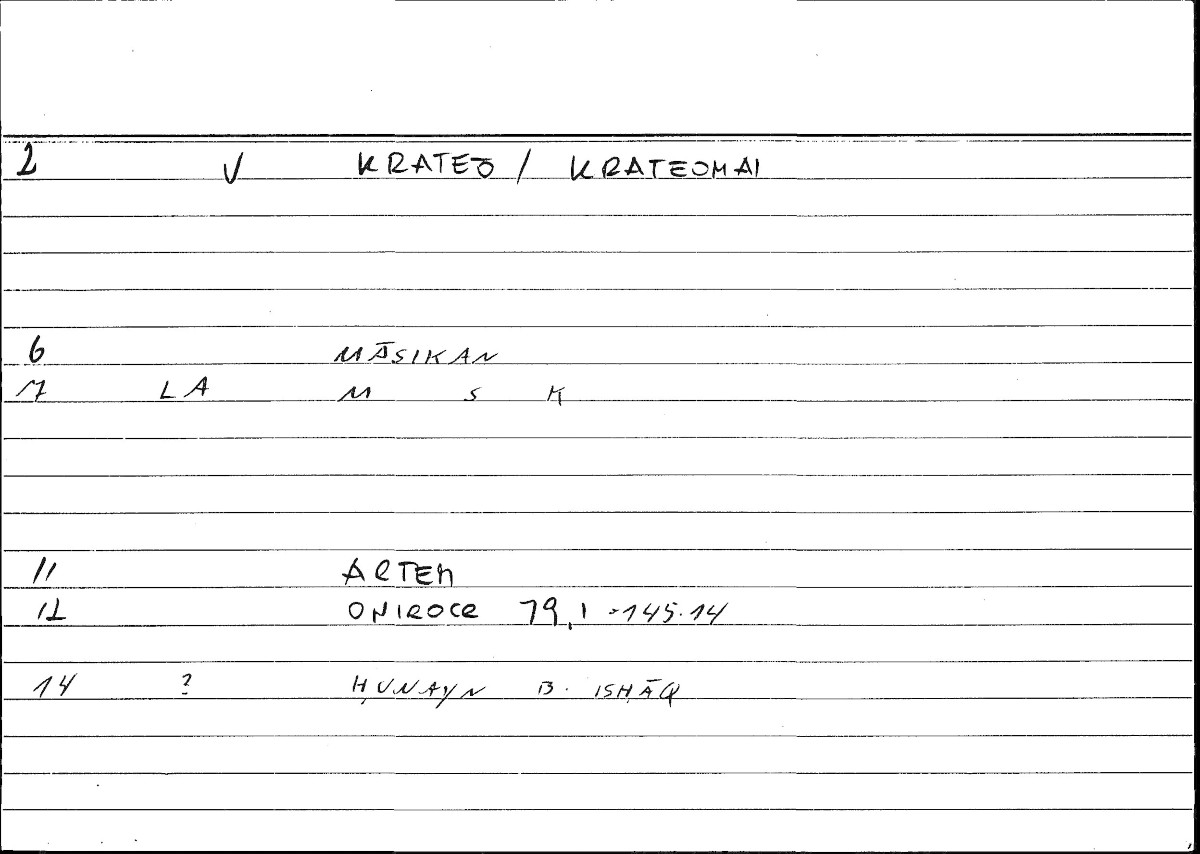 2 V KRATEŌ / KRATEOMAI
6 MĀSIKAN
7 LA M S K
11 ARTEM
12 ONIROCR 79,1 = 145.14
14 ? ḤUNAYN B. ISḤĀQ